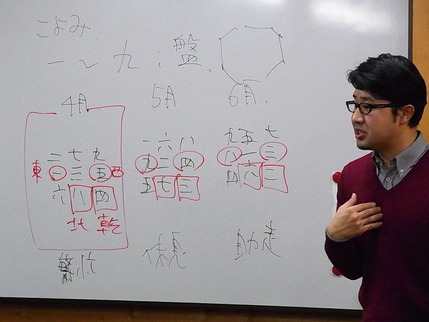 こよみ
一〜九:盤
4月 5月 6月
二七九 一六八 九五七
東一三五西 九二四 八一三
六八四 五七三 四六二
北乾
体境 助走